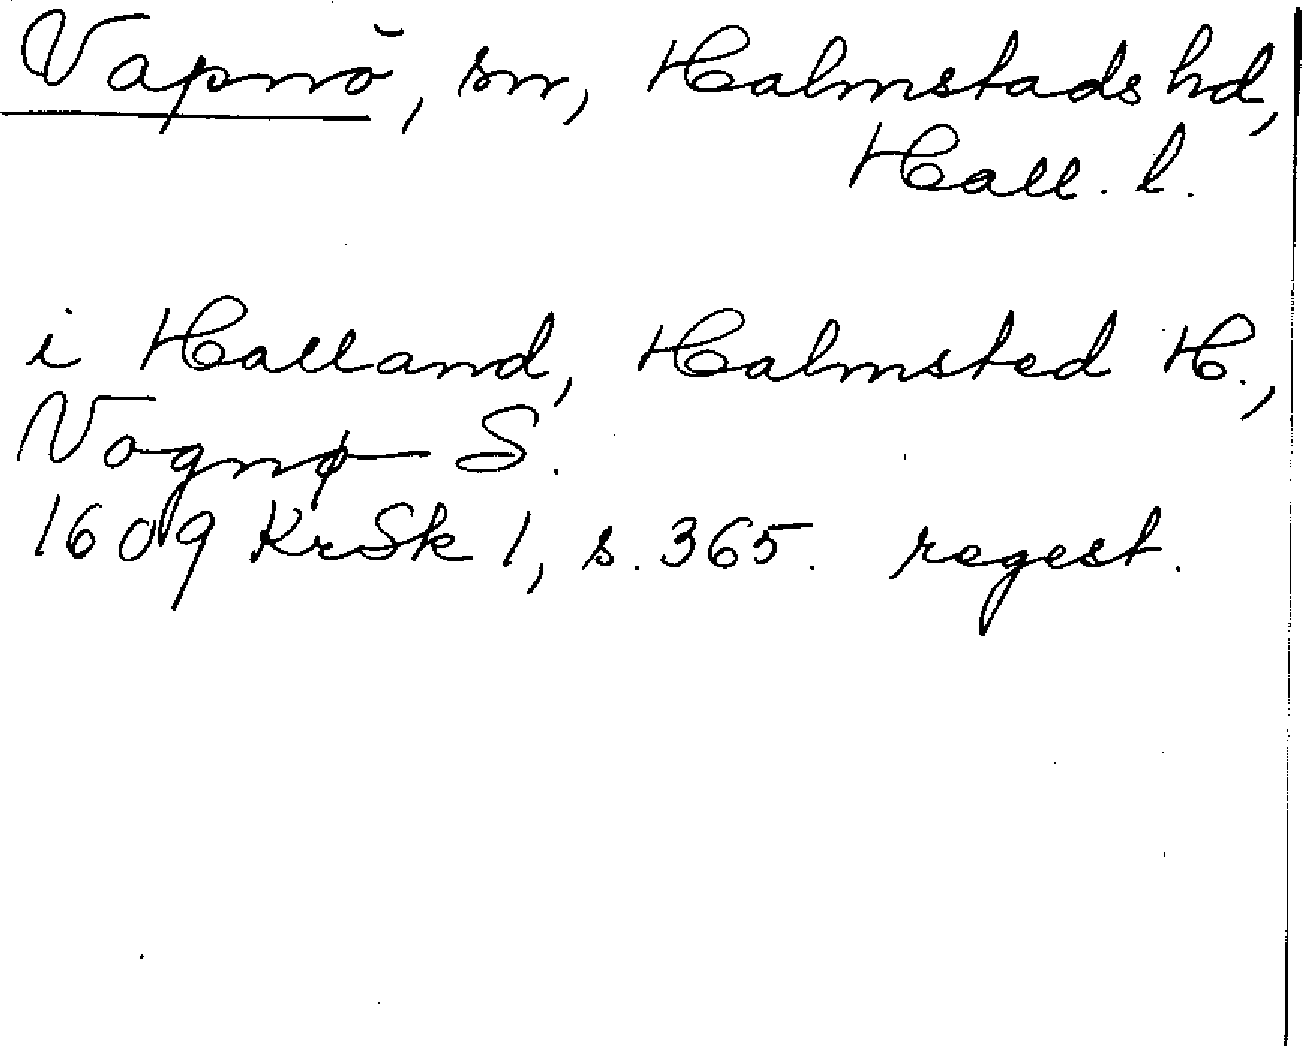 Vapnö, sn, Halmstads hd,
Hall. l.
i Halland, Halmsted H.,
Vognø S.
1609 KrSk 1, s. 365. regest.